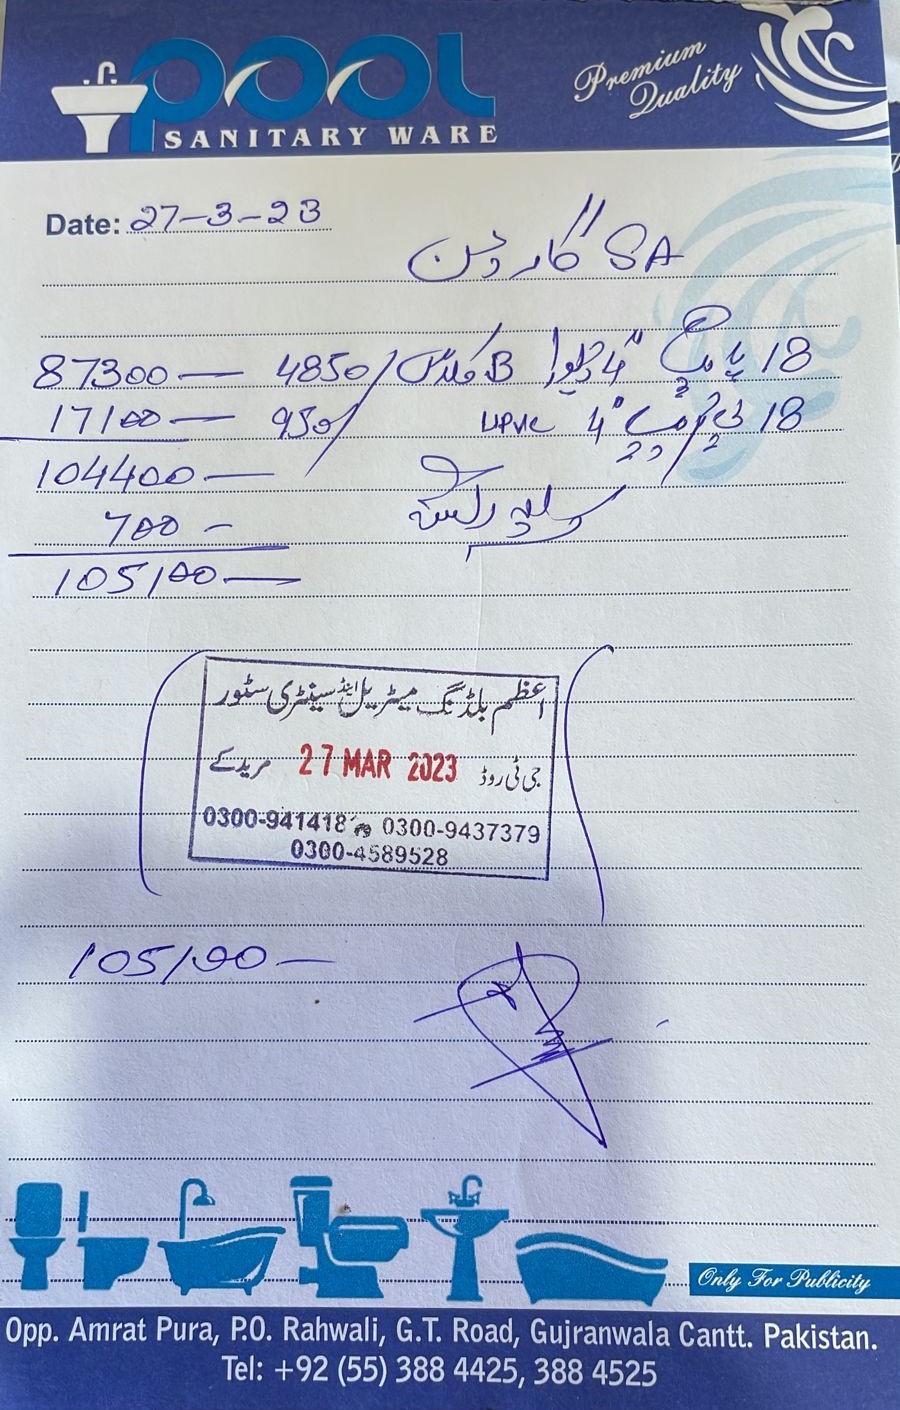 POOL
SANITARY WARE
Premium
Quality
Date: 27-3-23
SA گارڈن
18 پائپ 4" B کلاس 4850/ 87300
18 4" UPVC 950/ 17100
104400
700
105100
اعظم بلڈنگ میٹریل اینڈ سینٹری سٹور
جی ٹی روڈ 27 MAR 2023 مریدکے
0300-941418 0300-9437379
0300-4589528
105100
Only For Publicity
Opp. Amrat Pura, P.O. Rahwali, G.T. Road, Gujranwala Cantt. Pakistan.
Tel: +92 (55) 388 4425, 388 4525